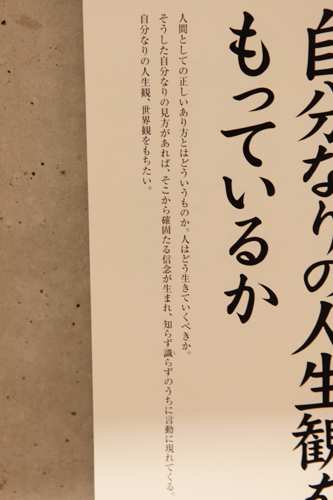 自分なりの人生観を
もっているか
人間としての正しいあり方とはどういうものか。人はどう生きていくべきか。
そうした自分なりの見方があれば、そこから確固たる信念が生まれ、知らず識らずのうちに言動に現れてくる。
自分なりの人生観、世界観をもちたい。